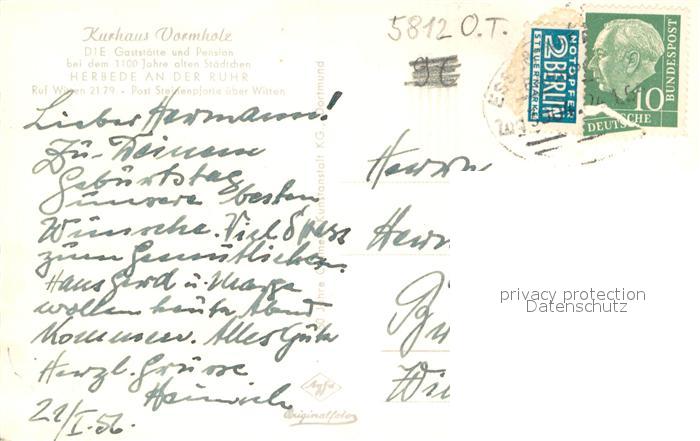 Kurhaus Vormholz
DIE Gaststätte und Pension
bei dem 1100 Jahre alten Städtchen
HERBEDE AN DER RUHR
Ruf Witten 2179 - Post Stehlenpforte über Witten
5812 O.T.
NOTOPFER
2 BERLIN
STEUERMARKE
10
DEUTSCHE
BUNDESPOST
Lieber Hermann!
Zu Deinem
Geburtstag
unsere besten
Wünsche. Viel Spass
zum Gemütlichen.
Hans Gerd u. Marga
wollen heute Abend
kommen. Alles Gute
Herzl. Grüsse
Heinrich
22/I.56.
Herrn
Herm
Wi
Kunstanstalt KG. Dortmund
Agfa
Originalfoto
privacy protection
Datenschutz